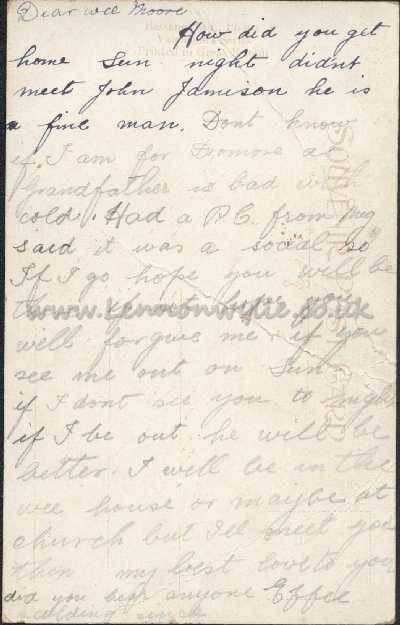 Dear wee Moore
How did you get
home Sun night didnt
meet John Jameson he is
a fine man. Dont know
if I am for Dromore a
Grandfather is bad with
cold. Had a P.C. from Mg
said it was a social so
If I go hope you will be
there if not hope you
www.lennonwylie.co.uk
will forgive me if you
see me out on Sun
if I dont see you to night
if I be out. he will be
better. I will be in the
wee house or maybe at
church but I'll meet you
then my best love to you
did you hear anyone Effee
scolding since
SOUVENIR POST CARD